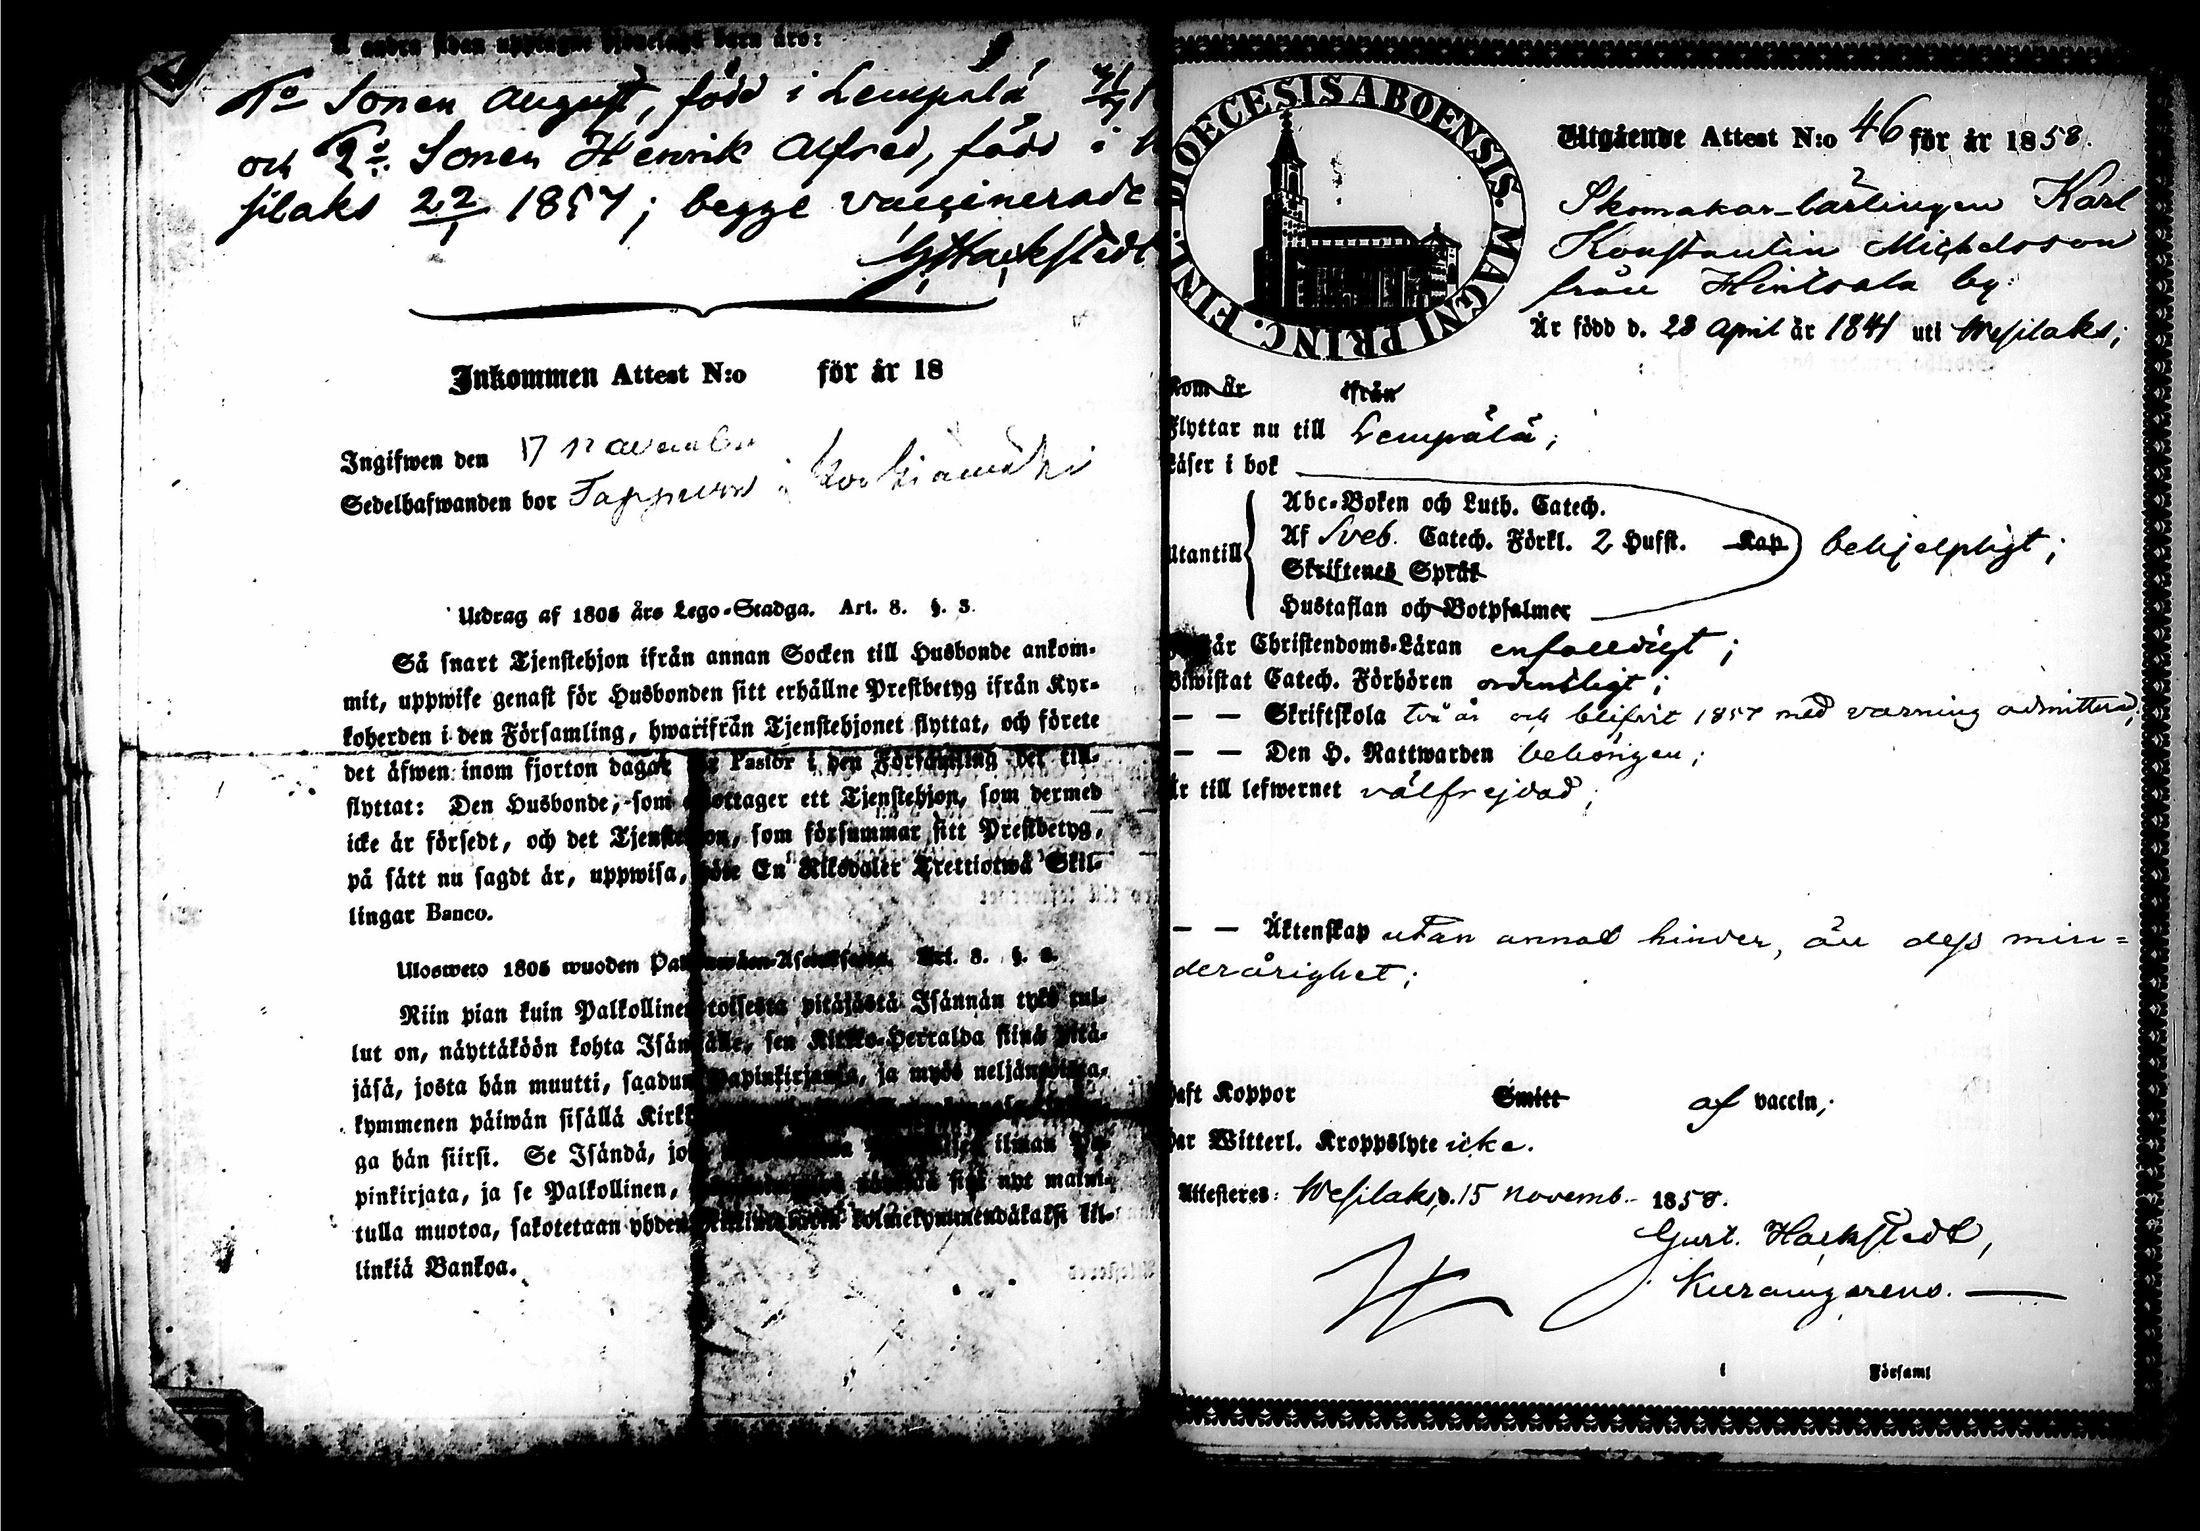 å andra sidan upptagne Hjonelags barn äro:
1o Sonen August, född i Lempälä
och 2o. Sonen Henrik Alfred, född i
silaks 22/1 1857; begge vaccinerade
GHackstedt
Inkommen Attest N:o för år 18
Ingifwen den 17 november
Sedelhafwanden bor
Utdrag af 1805 års Lego-Stadga. Art. 8. §. 3.
Så snart Tjenstehjon ifrån annan Socken till Husbonde ankom-
mit, uppwise genast för Husbonden sitt erhållne Prestbetyg ifrån Kyr-
koherden i den Församling, hwarifrån Tjenstehjonet flyttat, och förete
det äfwen inom fjorton dagar Pastor i den Församling det till-
flyttat: Den Husbonde, som emottager ett Tjenstehjon, som dermed
icke är försedt, och det Tjenstehjon, som försummar sitt Prestbetyg,
på sätt nu sagdt är, uppwisa, böte En Riksdaler Trettiotwå Skil-
lingar Banco.
Ulosweto 1805 wuoden Art. 8. §. 3.
Niin pian kuin Palkollinen toisesta pitäjästä Isännän tykö tul-
lut on, näyttäköön kohta Isännälle, sen Kirkko-Herralda siinä Pitä-
jäsä, josta hän muutti, saadun Papinkirjansa, ja myös neljäntoista-
kymmenen päiwän sisällä
ga hän siirsi. Se Isändä, ilman Pa-
pinkirjata, ja se Palkollinen, sitä nyt maini-
tulla muotoa, sakotetaan yhden kolmekymmendäkaksi kil-
linkiä Bankoa.
DIOECESIS ABOENSIS. MAGNI PRINC. FINL.
Utgående Attest N:o 46 för år 1858.
Skomakar-lärlingen Karl
Konstantin Michelsson
från Hintsala by.
Är född d. 28 April år 1841 uti Wesilaks;
kom år ifrån
Flyttar nu till Lempälä;
Läser i bok
Utantill
Abc-Boken och Luth. Catech.
Af Sveb. Catech. Förkl. 2 Hufst. Kap behjelpligt;
Skriftenes Språk
Hustaflan och Botpsalmer
Förstår Christendoms-Läran enfaldigt;
Biwistat Catech. Förhören ordentligt;
— — Skriftskola två år och blifvit 1857 med varning admitterad;
— — Den H. Nattwarden behörigen;
Är till lefwernet välfrejdad;
— — Äktenskap utan annat hinder, än dess min=
derårighet;
Haft Koppor Smitt af vaccin;
Har Witterl. Kroppslyte icke.
Attesteres: Wesilaks, d. 15 novemb. 1858.
Gust. Hackstedt,
i Församl